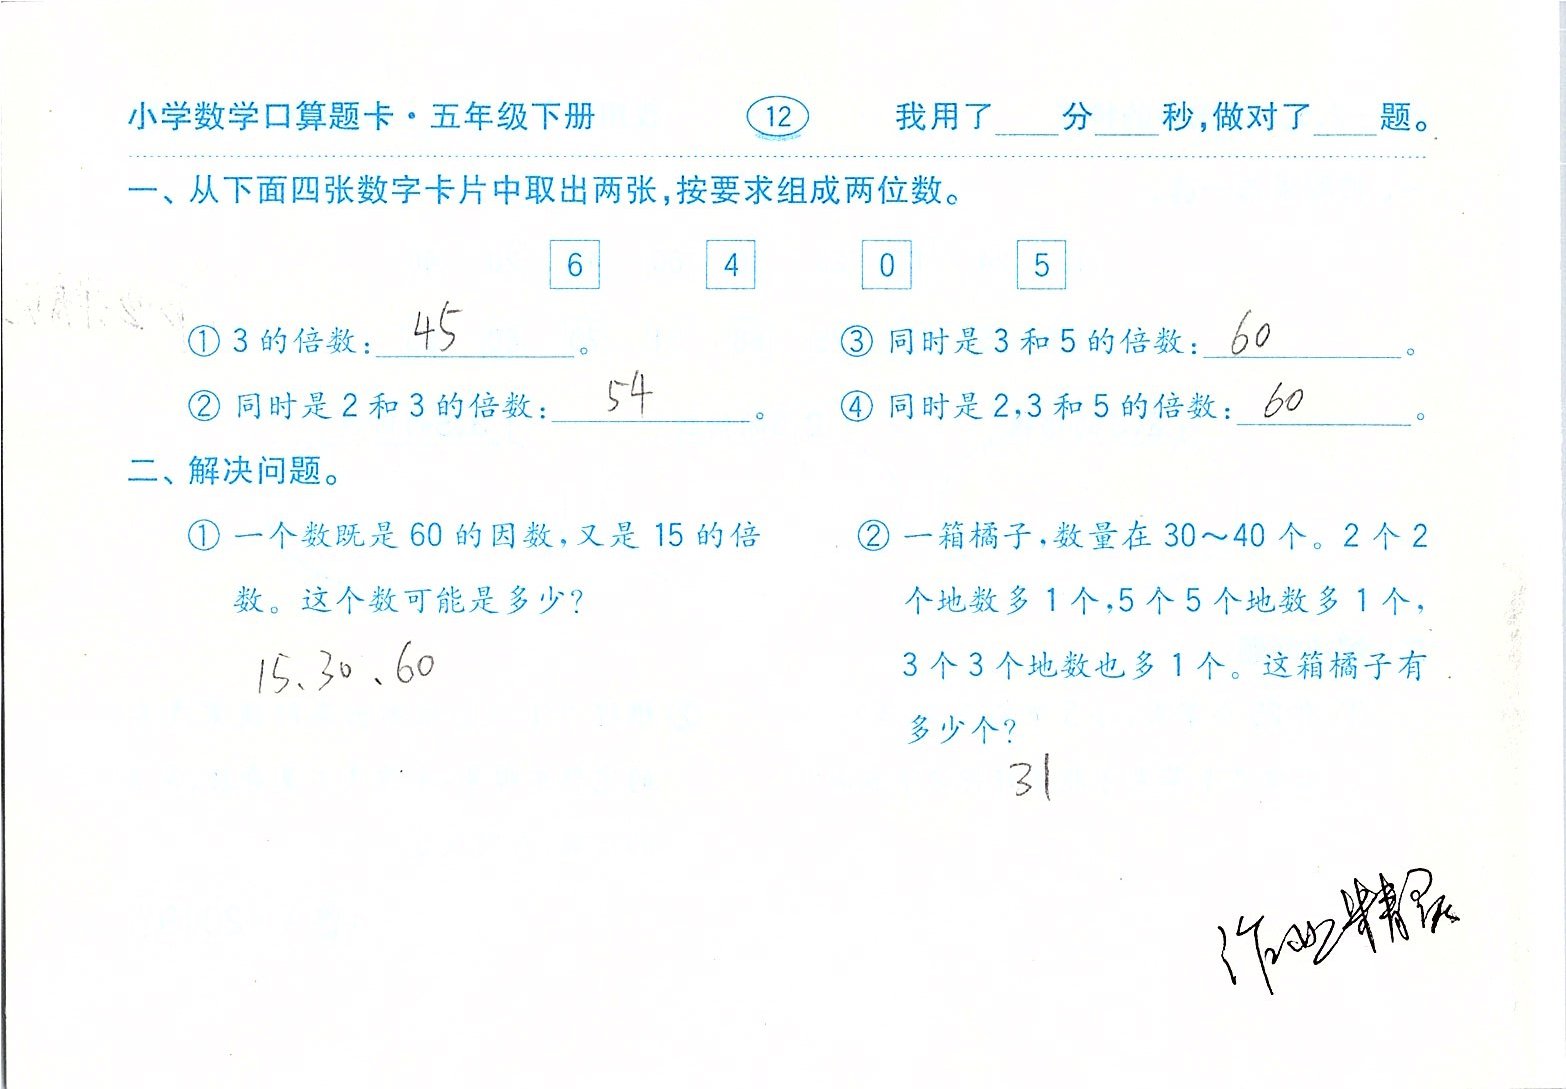 小学数学口算题卡·五年级下册 12 我用了____分____秒,做对了____题。
一、从下面四张数字卡片中取出两张,按要求组成两位数。
6 4 0 5
① 3的倍数: 45 。 ③ 同时是3和5的倍数: 60 。
② 同时是2和3的倍数: 54 。 ④ 同时是2,3和5的倍数: 60 。
二、解决问题。
① 一个数既是60的因数,又是15的倍
数。这个数可能是多少?
15、30、60
② 一箱橘子,数量在30～40个。2个2
个地数多1个,5个5个地数多1个,
3个3个地数也多1个。这箱橘子有
多少个?
31
作业精灵